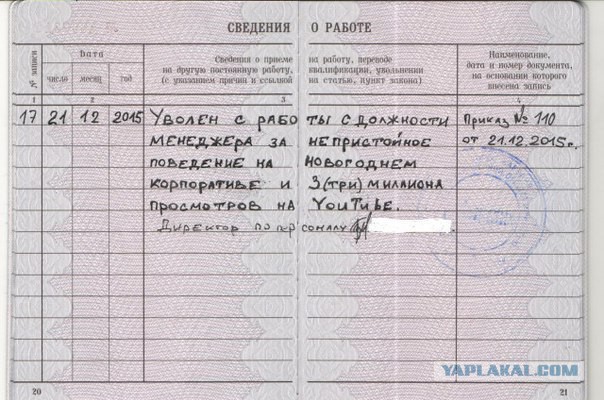 СВЕДЕНИЯ О РАБОТЕ
№ записи
Дата
число месяц год
Сведения о приеме на работу, переводе
на другую постоянную работу, квалификации, увольнении
(с указанием причин и ссылкой на статью, пункт закона)
Наименование,
дата и номер документа,
на основании которого
внесена запись
1 2 3 4
17 21 12 2015 Уволен с работы с должности Приказ № 110
менеджера за непристойное от 21.12.2015г.
поведение на новогоднем
корпоративе и 3 (три) миллиона
просмотров на YouTube.
Директор по персоналу
YAPLAKAL.COM
20 21